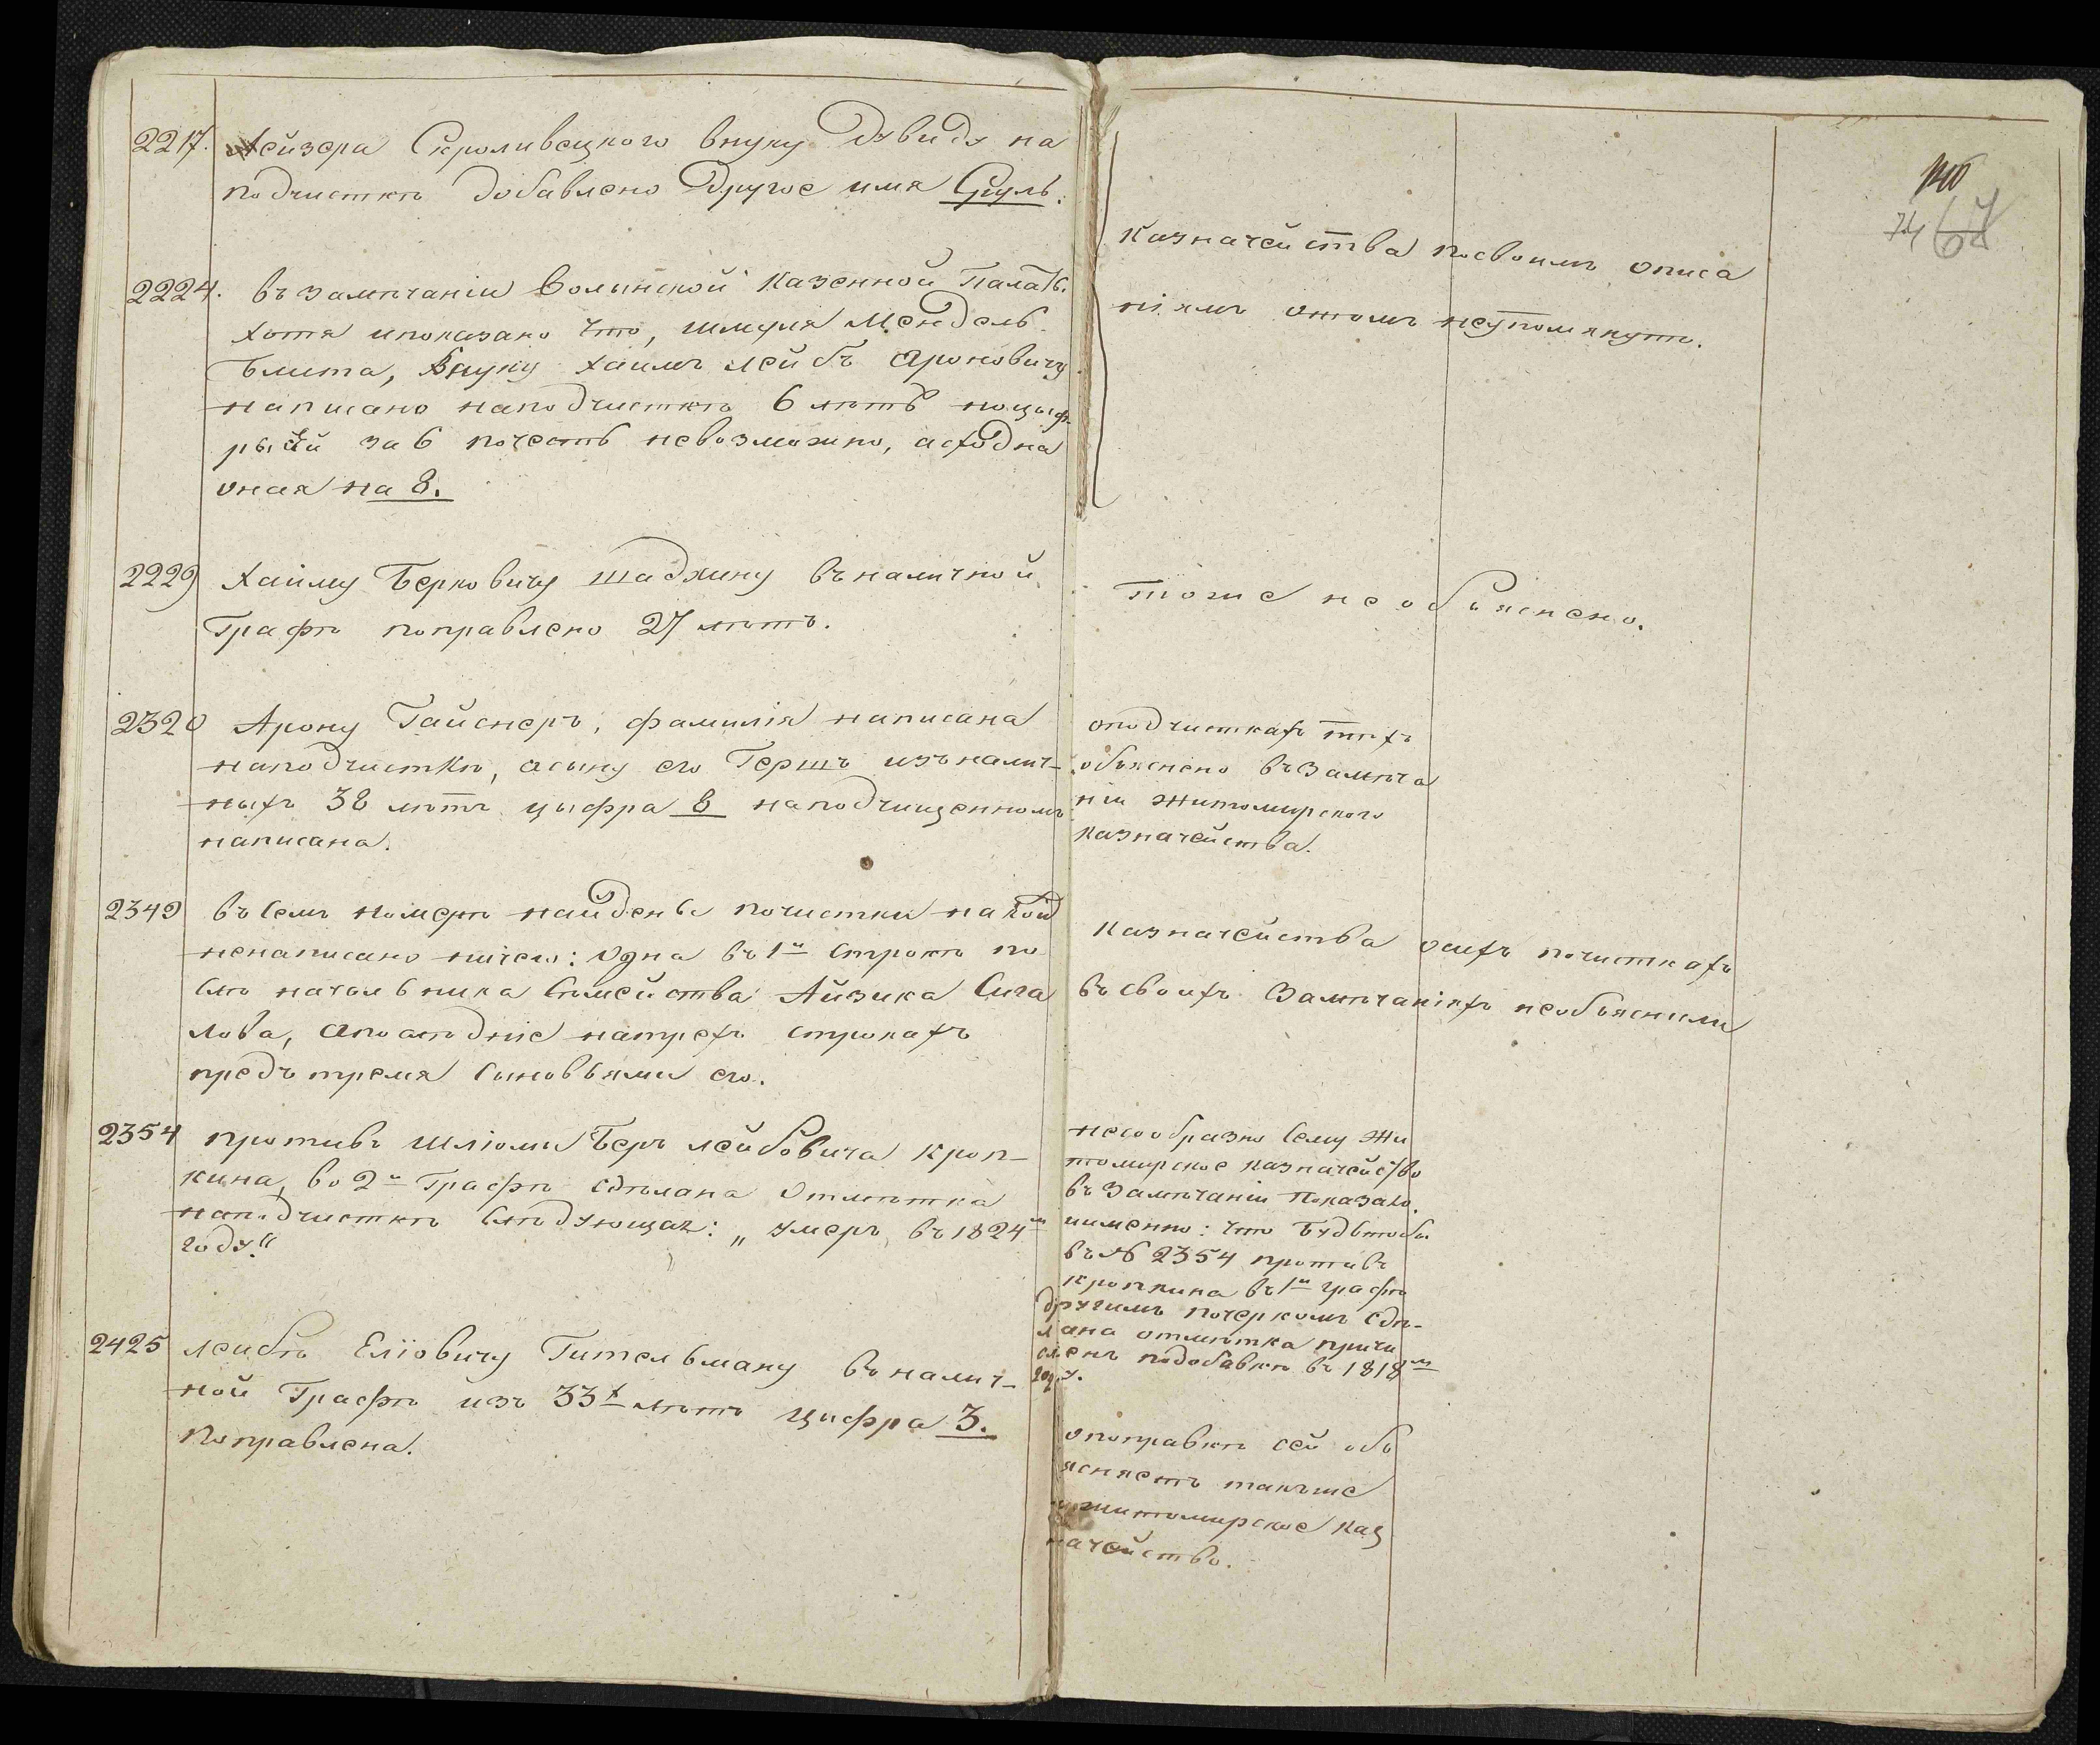 2217. Лейзера Скроливецкого внуку Давиду на
подчисткѣ добавлено другое имя Сруль.
2224. въ замѣчаніи Волынской Казенной Палаты
хотя ипоказано что, шмуля Мендель
Блита, Внуку Хаимъ лейбъ Ароновичу
написано наподчисткѣ 6 лѣтъ ноцыф-
рый за 6 почесть невозможно, асходна
оная на 8.
2229 Хаиму Берковичу шадхину въналичной
Графѣ поправлено 27 лѣтъ.
2320 Арону Гайснеръ, фамилія написана
наподчисткѣ, асыну его Гершъ изъналич-
ныхъ 38 лѣтъ цыфра 8 наподчищенномъ
написана.
2349 въ семъ номерѣ найдены почистки на кой
ненаписано ничего: Одна въ 1й строкѣ по
слѣ начальника Семейства Айзика Сига
лова, апослѣдніе натрехъ строкахъ
предъ тремя Сыновьями его.
2354 противъ Шліомы Беръ лейбовича кроп-
кина, во 2й Графѣ сдѣлана Отмѣтка
наподчисткѣ Слѣдующая: „ умеръ въ 1824м
году.“
2425 лейбѣ Еліовичу Гительману въ налич-
ной Графѣ изъ 33х лѣтъ цыфра 3.
поправлена.
140
74 64
Казначейства посвоимъ описа
ніямъ отомъ неупомянуто.
тоже необъяснено.
оподчисткахъ тѣхъ
объяснено въ замѣча
ніи Житомирского
казначейства.
Казначейства осихъ почисткахъ
въ своихъ Замѣчаніяхъ необъяснили
несообразно Сему Жи
томирское казначейство
въ Замѣчаніи показало.
иименно: что Будьтобы
въ № 2354 противъ
кропкина въ 1й графѣ
другимъ почеркомъ Сдѣ-
лана отмѣтка причи
сленъ подобавкѣ въ 1818м
году.
опоправкѣ сей объ
ясняетъ такъже
Житомирское каз
начейство.